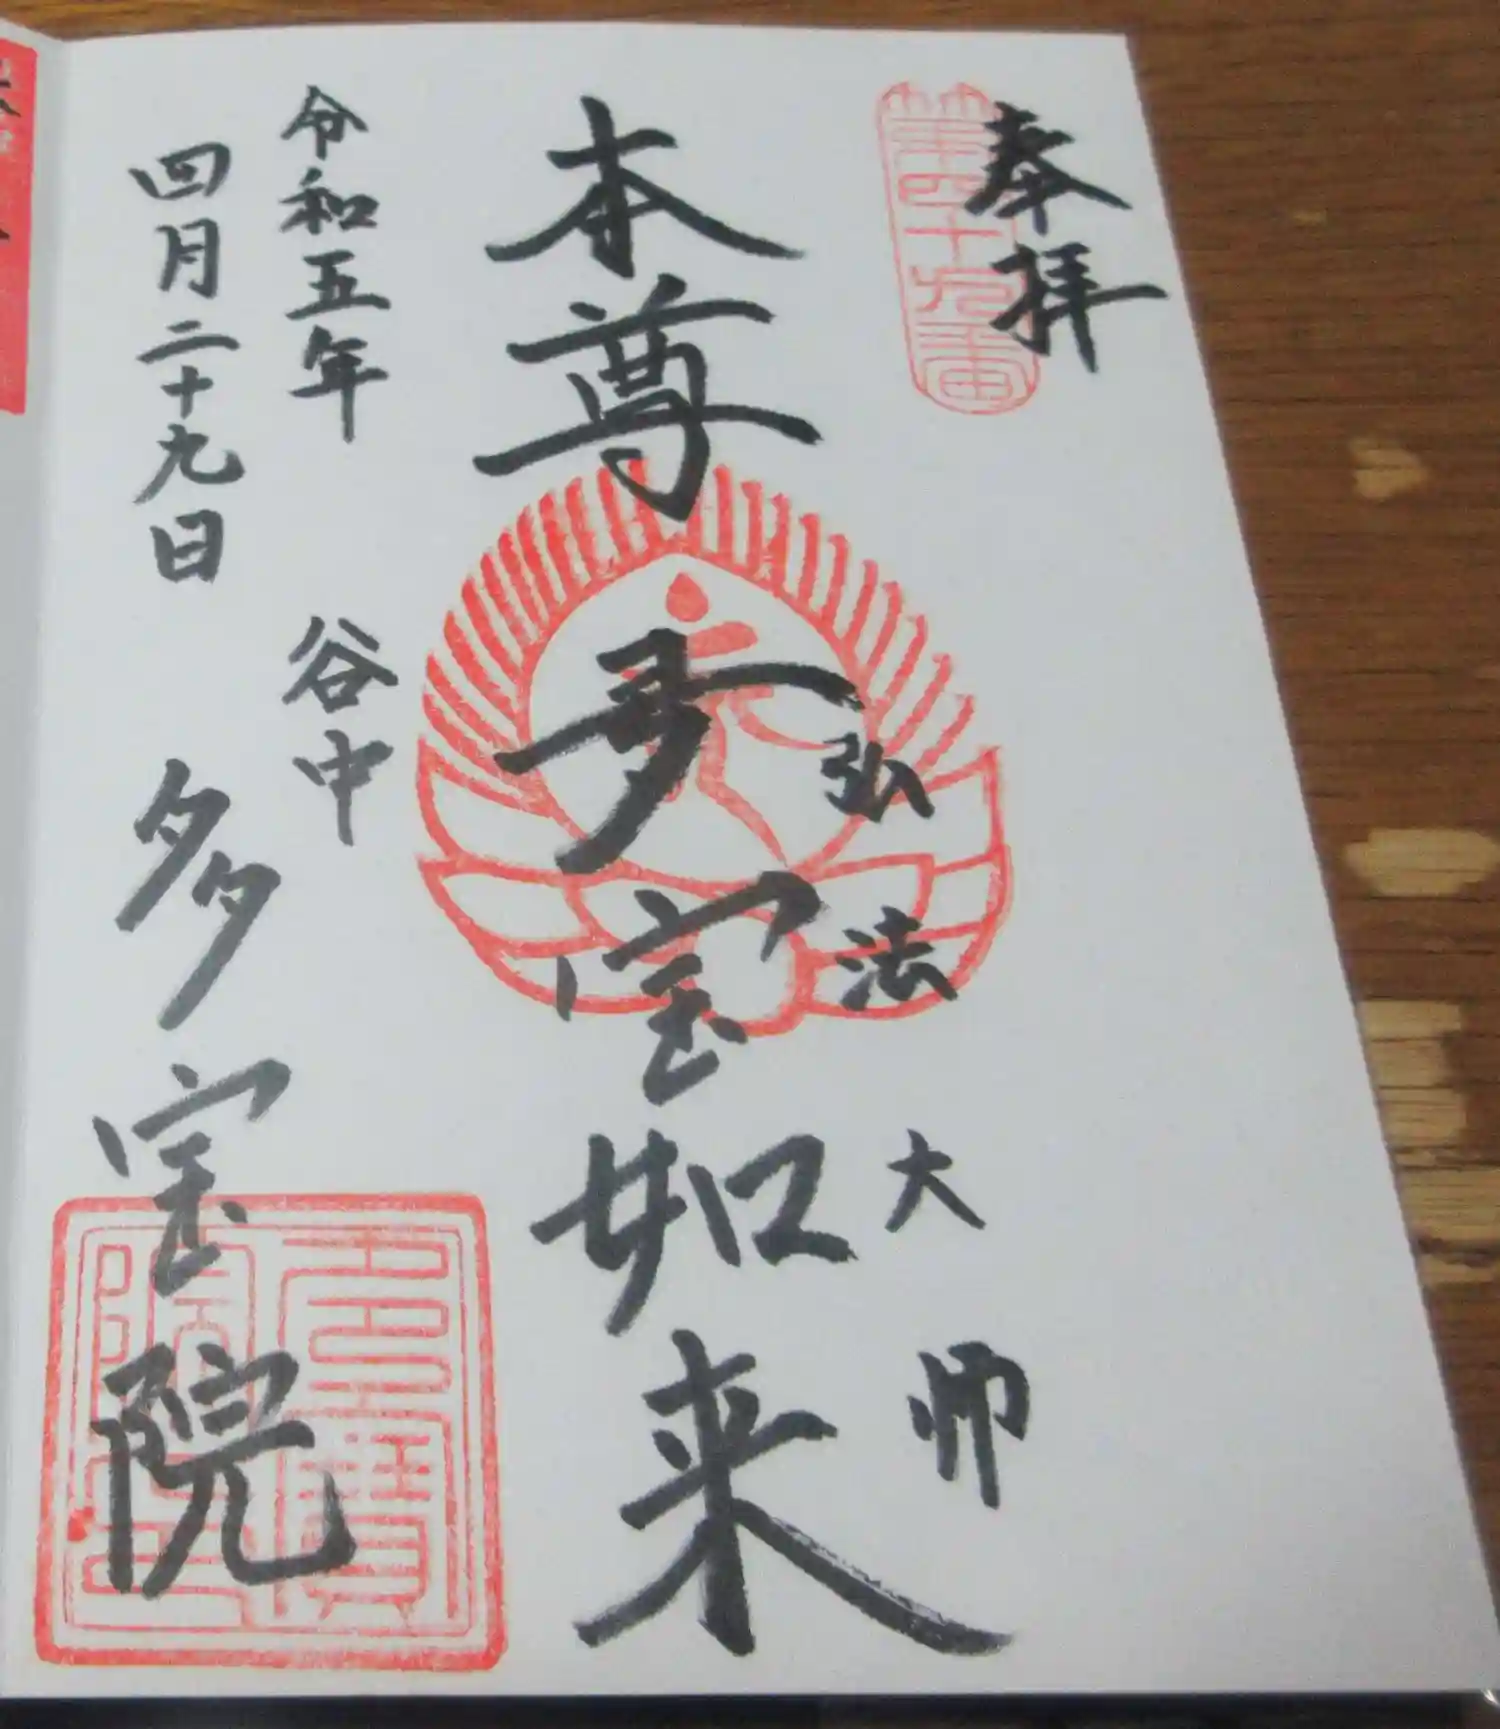 奉拝
第四十九番
弘法大師
本尊 多宝如来
令和五年 谷中
四月二十九日 多宝院